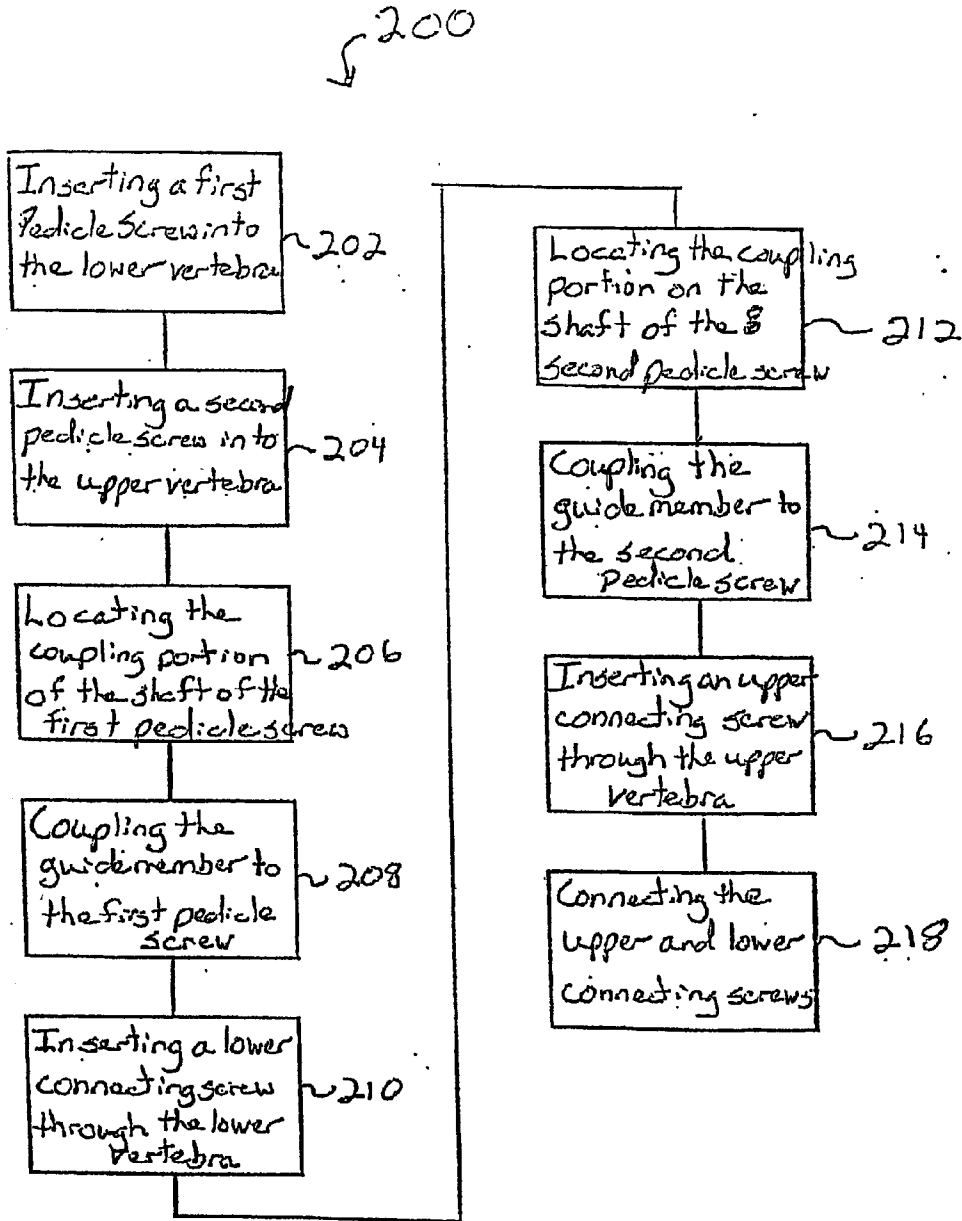 200
Inserting a first
Pedicle Screw into
the lower vertebra
202
Inserting a second
pedicle screw in to
the upper vertebra
204
Locating the
coupling portion
of the shaft of the
first pedicle screw
206
Coupling the
guide member to
the first pedicle
screw
208
Inserting a lower
connecting screw
through the lower
vertebra
210
Locating the coupling
portion on the
shaft of the
second pedicle screw
212
Coupling the
guide member to
the second
pedicle screw
214
Inserting an upper
connecting screw
through the upper
vertebra
216
Connecting the
upper and lower
connecting screws
218